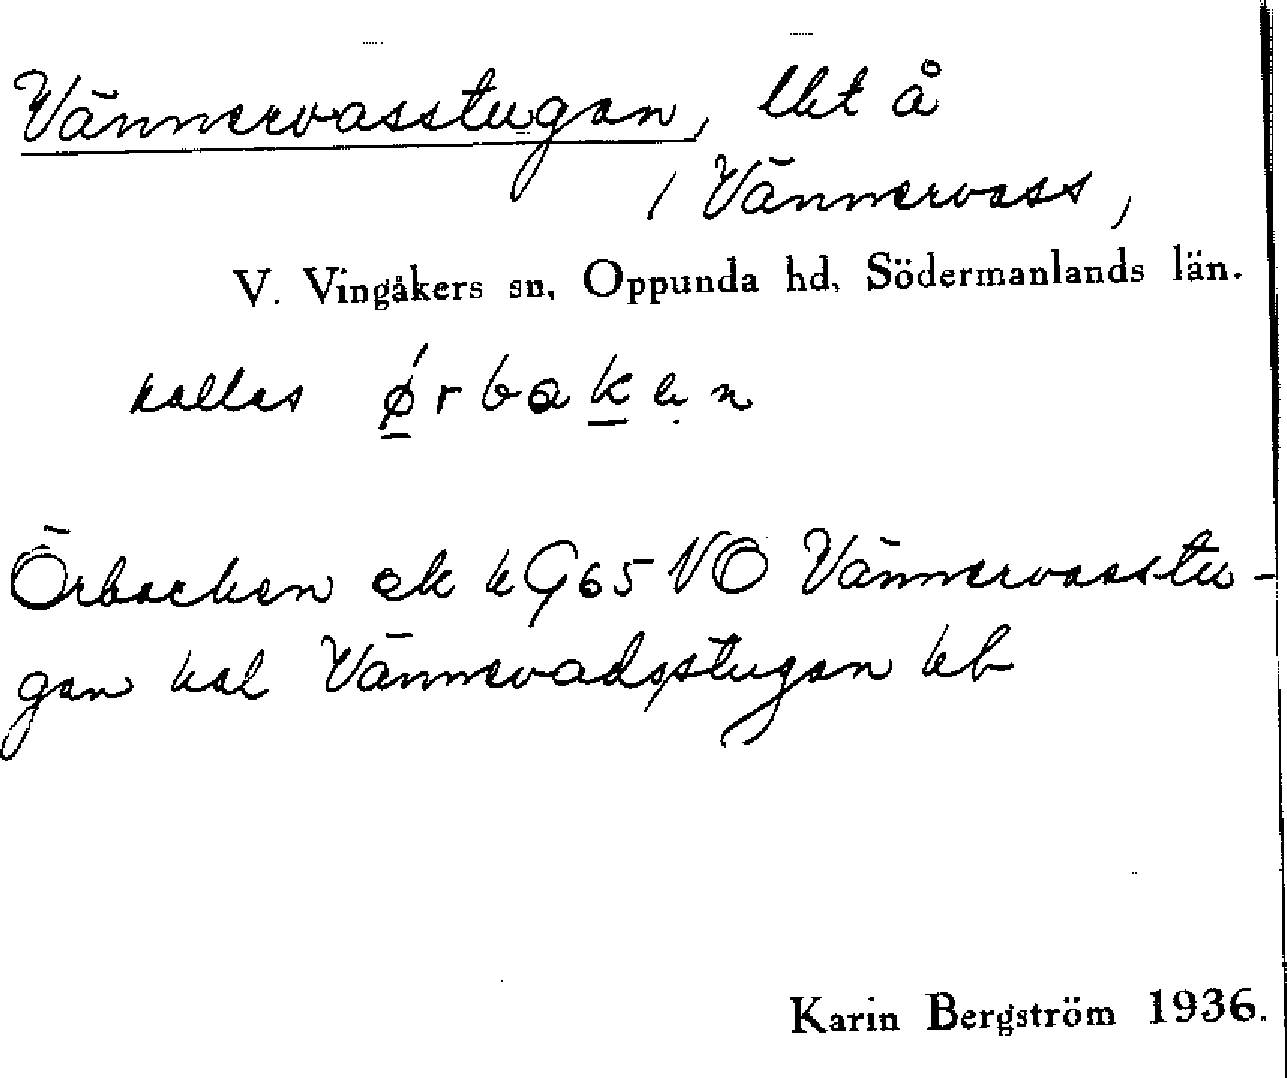 Vännervasstugan, lht å
/ Vännervass,
V. Vingåkers sn, Oppunda hd, Södermanlands län.
kallas ǿrbaken
Örbacken ek kG65 NO Vännervasstu-
gan hal Vännevadsstugan hb
Karin Bergström 1936.